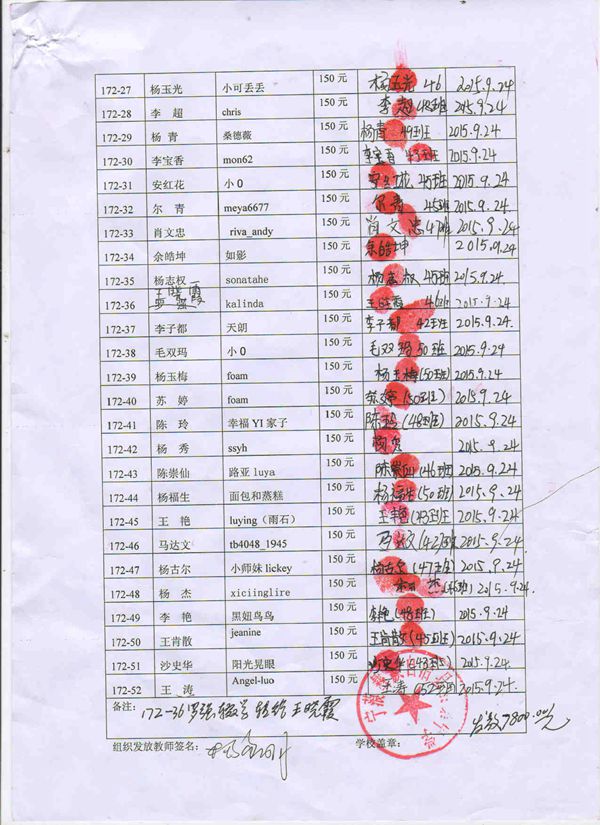 172-27 杨玉光 小可丢丢 150 元 杨玉光 46 2015.9.24
172-28 李 超 chris 150 元 李超 48班 2015.9.24
172-29 杨 青 桑德薇 150 元 杨青 49班 2015.9.24
172-30 李宝香 mon62 150 元 李宝香 43班 2015.9.24
172-31 安红花 小 0 150 元 安红花 45班 2015.9.24
172-32 尔 青 meya6677 150 元 尔青 45班 2015.9.24
172-33 肖文忠 riva_andy 150 元 肖文忠 47班 2015.9.24
172-34 余皓坤 如影 150 元 余皓坤 2015.9.24
172-35 杨志权 sonatahe 150 元 杨志权 45班 2015.9.24
王晓霞
172-36 kalinda 150 元 王晓霞 46班 2015.9.24
172-37 李子都 天朗 150 元 李子都 42班 2015.9.24
172-38 毛双玛 小 0 150 元 毛双玛 50班 2015.9.24
172-39 杨玉梅 foam 150 元 杨玉梅(50班) 2015.9.24
172-40 苏 婷 foam 150 元 苏婷(50班) 2015.9.24
172-41 陈 玲 幸福 YI 家子 150 元 陈玲(48班) 2015.9.24
172-42 杨 秀 ssyh 150 元 杨秀 2015.9.24
172-43 陈崇仙 路亚 luya 150 元 陈崇仙(46班) 2015.9.24
172-44 杨福生 面包和蒸糕 150 元 杨福生(50班) 2015.9.24
172-45 王 艳 luying（雨石） 150 元 王艳(43班) 2015.9.24
172-46 马达文 tb4048_1945 150 元 马达文(42班) 2015.9.24
172-47 杨古尔 小师妹 lickey 150 元 杨古尔(47班) 2015.9.24
172-48 杨 杰 xiciinglire 150 元 杨杰 2015.9.24
172-49 李 艳 黑妞鸟鸟 150 元 李艳(48班) 2015.9.24
172-50 王肖散 jeanine 150 元 王肖散(45班) 2015.9.24
172-51 沙史华 阳光晃眼 150 元 沙史华(48班) 2015.9.24
172-52 王 涛 Angel-luo 150 元 王涛 52班 2015.9.24
备注： 172-36 罗强 转给王晓霞
7800.00元
组织发放教师签名： 学校盖章：